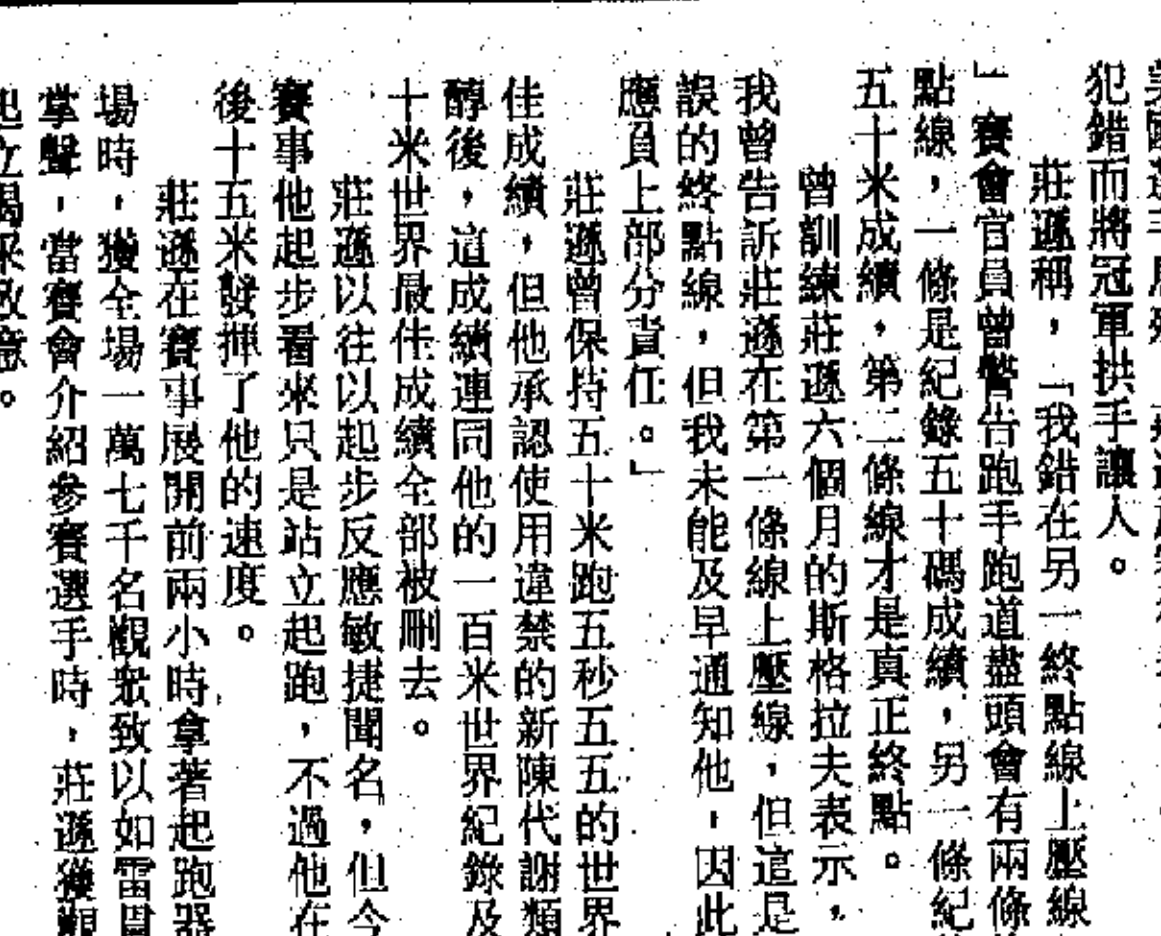 犯錯而將冠軍拱手讓人。
莊遜稱,「我錯在另一終點線上壓線
」賽會官員曾警告跑手跑道盡頭會有兩條
點線,一條是紀錄五十碼成績,另一條紀
五十米成績,第二條線才是真正終點。
曾訓練莊遜六個月的斯格拉夫表示,
我曾告訴莊遜在第一條線上壓線,但這是
誤的終點線,但我未能及早通知他,因此
應負上部分責任。」
莊遜曾保持五十米跑五秒五五的世界
佳成績,但他承認使用違禁的新陳代謝類
醇後,這成績連同他的一百米世界紀錄及
十米世界最佳成績全部被刪去。
莊遜以往以起步反應敏捷聞名,但今
賽事他起步看來只是站立起跑,不過他在
後十五米發揮了他的速度。
莊遜在賽事展開前兩小時拿著起跑器
場時,獲全場一萬七千名觀眾致以如雷貫
掌聲,當賽會介紹參賽選手時,莊遜獲觀
起立喝采致意。